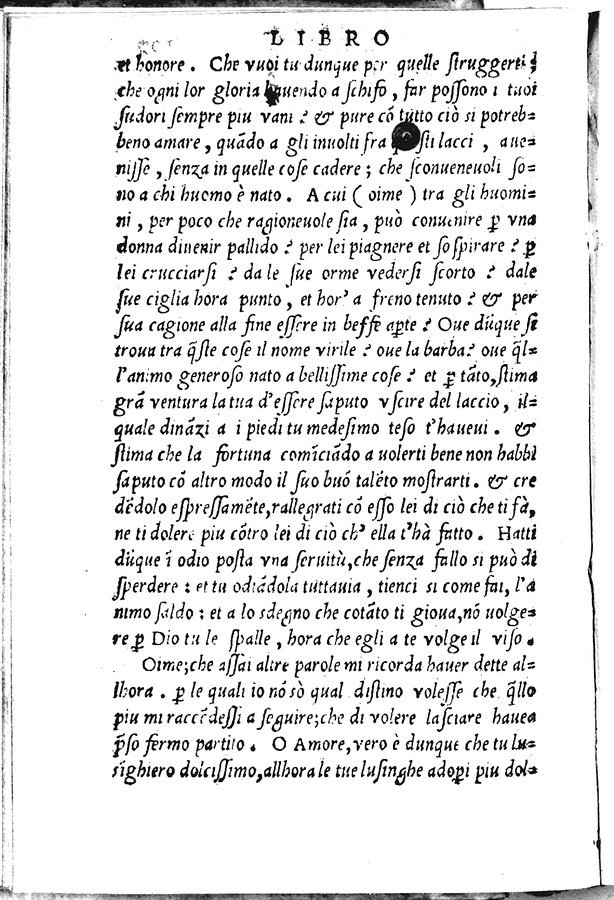 LIBRO
et honore. Che vuoi tu dunque per quelle struggerti?
che ogni lor gloria hauendo a schifo, far possono i tuoi
sudori sempre piu vani? & pure cõ tutto ciò si potreb-
beno amare, quãdo a gli inuolti fra lacci, aue-
nisse, senza in quelle cose cadere; che sconueneuoli so=
no a chi huomo è nato. A cui ( oime ) tra gli huomi=
ni, per poco che ragioneuole sia, può conuenire ꝑ vna
donna diuenir pallido? per lei piagnere et sospirare? ꝑ
lei crucciarsi? da le sue orme vedersi scorto? dale
sue ciglia hora punto, et hor' a freno tenuto? & per
sua cagione alla fine essere in beffe aꝑte? Oue dũque si
troua tra q̃ste cose il nome virile? oue la barba? oue q̃l=
l'animo generoso nato a bellissime cose? et ꝑ tãto, stima
grã ventura la tua d'essere saputo vscire del laccio, il=
quale dinãzi a i piedi tu medesimo teso t'haueui. &
stima che la fortuna comĩciãdo a uolerti bene non habbi
saputo cõ altro modo il suo buõ talẽto mostrarti. & cre
dẽdolo espressamẽte, rallegrati cõ esso lei di ciò che ti fà,
ne ti dolere piu cõtro lei di ciò ch' ella t'hà fatto. Hatti
dũque ĩ odio posta vna seruitù, che senza fallo si può di
sperdere: et tu odiãdola tuttauia, tienci si come fai, l'a
nimo saldo; et a lo sdegno che cotãto ti gioua, nõ uolge=
re ꝑ Dio tu le spalle, hora che egli a te volge il viso.
Oime; che assai altre parole mi ricorda hauer dette al=
lhora. ꝑ le quali io nõ sò qual distino volesse che q̃llo
piu mi raccẽdessi a seguire; che di volere lasciare hauea
p̃so fermo partito. O Amore, vero è dunque che tu lu=
singhiero dolcissimo, allhora le tue lusinghe adoꝑi piu dol=